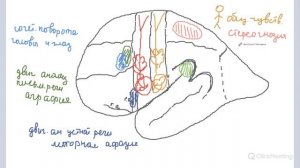 сочет поворота
головы и глаз
двиг анализ
письм речи
аграфия
двиг. ан устной речи
моторная афазия
общ чувств
стереогнозия